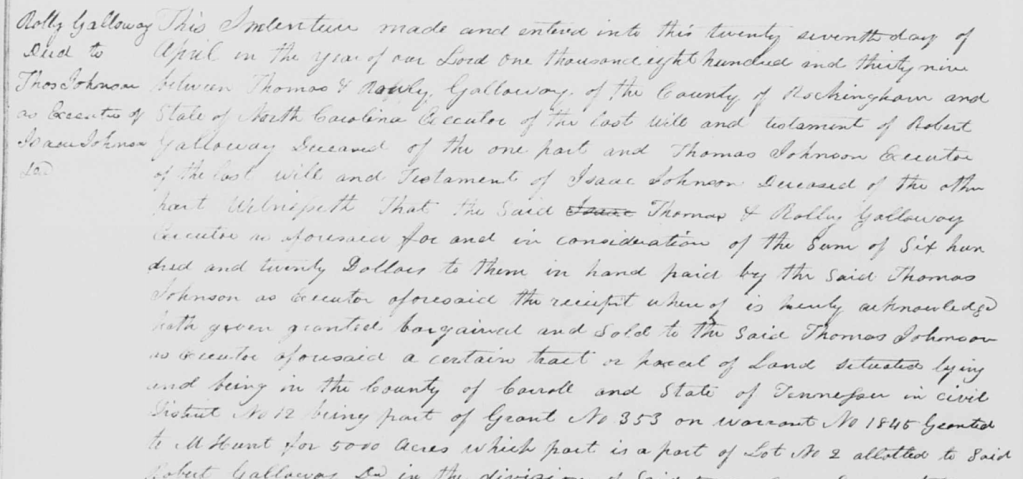 Rolly Galloway
Deed to
Thos Johnson
as Executor of
Isaac Johnson
Dcd
This Indenture made and entered into this twenty seventh day of
April in the year of our Lord one thousand eight hundred and thirty nine
between Thomas & Rolly Galloway of the County of Rockingham and
State of North Carolina Executor of the last will and testament of Robert
Galloway Deceased of the one part and Thomas Johnson Executor
of the last will and Testament of Isaac Johnson Deceased of the other
part Witnesseth That the Said Isaac Thomas & Rolly Galloway
Executor as aforesaid for and in consideration of the Sum of Six hun
dred and twenty Dollars to them in hand paid by the Said Thomas
Johnson as Executor aforesaid the receipt where of is hereby acknowledgd
hath given granted bargained and Sold to the Said Thomas Johnson
as Executor aforesaid a certain tract or parcel of Land situated lying
and being in the County of Carroll and State of Tennessee in civil
District No 12 being part of Grant No 353 on warrant No 1845 Granted
to M Hunt for 5000 Acres which part is a part of Lot No 2 allotted to Said
Robert Galloway Dcd in the division of